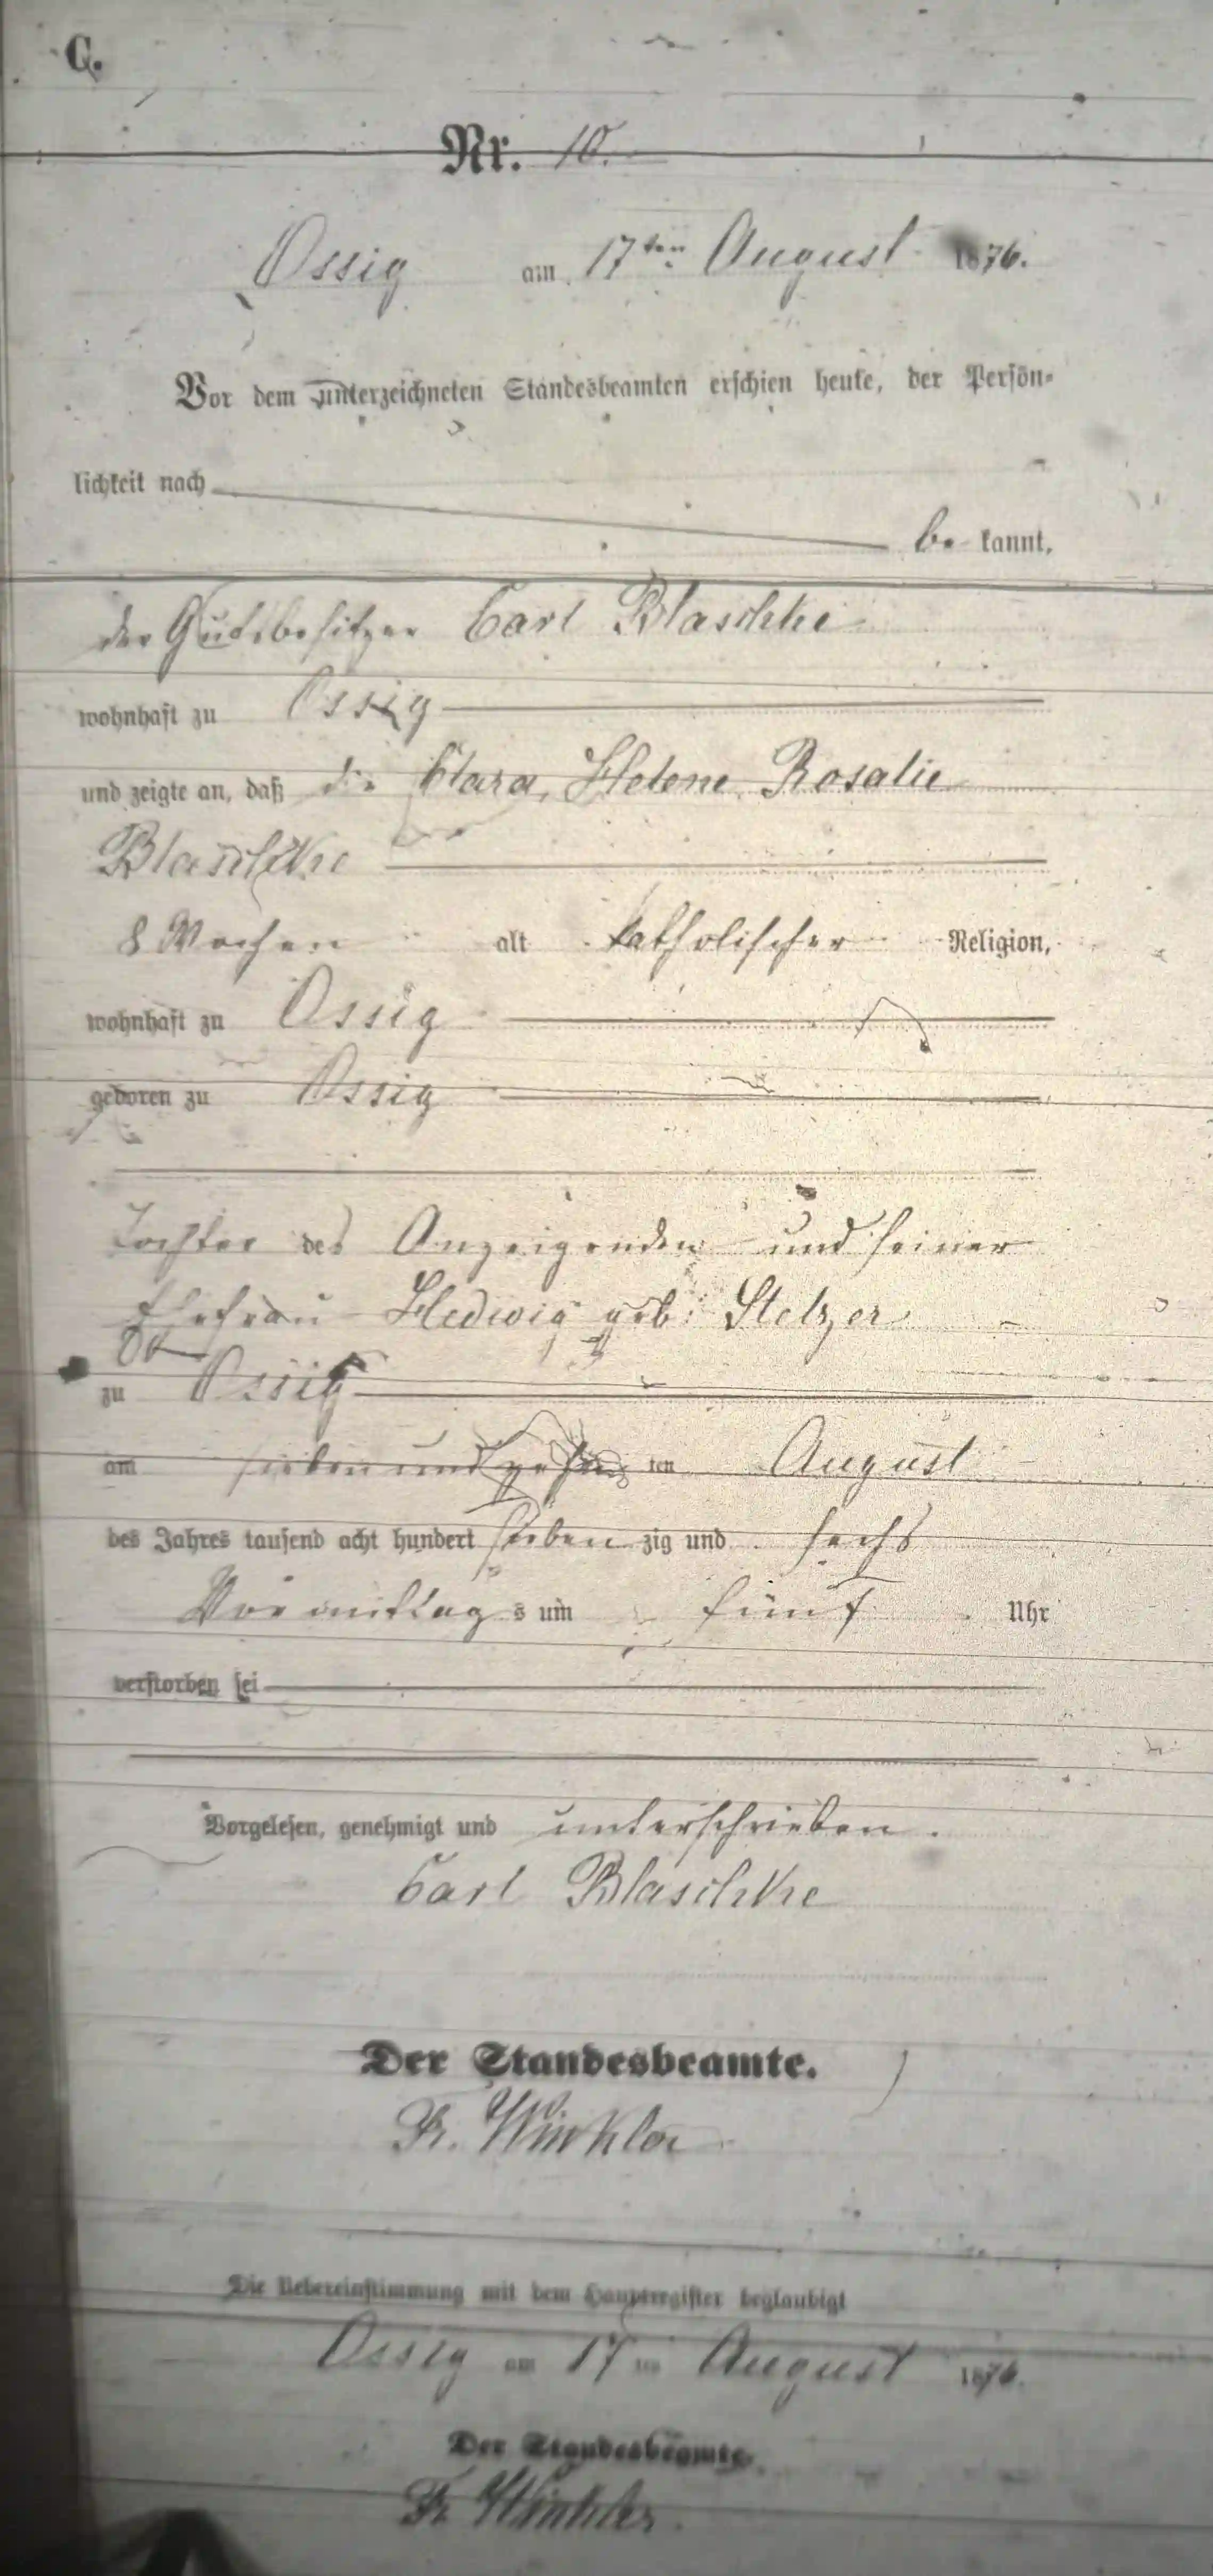 C.
Nr. 10.
Ossig am 17ten August 1876.
Vor dem unterzeichneten Standesbeamten erschien heute, der Persön-
lichkeit nach
be kannt,
der Gutsbesitzer Carl Blaschke
wohnhaft zu Ossig
und zeigte an, daß die Clara, Helene Rosalie
Blaschke
8 Wochen alt katholischer Religion,
wohnhaft zu Ossig
geboren zu Ossig
Tochter des Anzeigenden und seiner
Ehefrau Hedwig geb: Stelzer
zu Ossig
am sieben und zehn ten August
des Jahres tausend acht hundert sieben zig und sechs
Vormittag s um fünf Uhr
verstorben sei
Vorgelesen, genehmigt und unterschrieben.
Carl Blaschke
Der Standesbeamte.
Fr. Winkler
Die Uebereinstimmung mit dem Hauptregister beglaubigt
Ossig am 17ten August 1876.
Der Standesbeamte.
Fr Winkler.